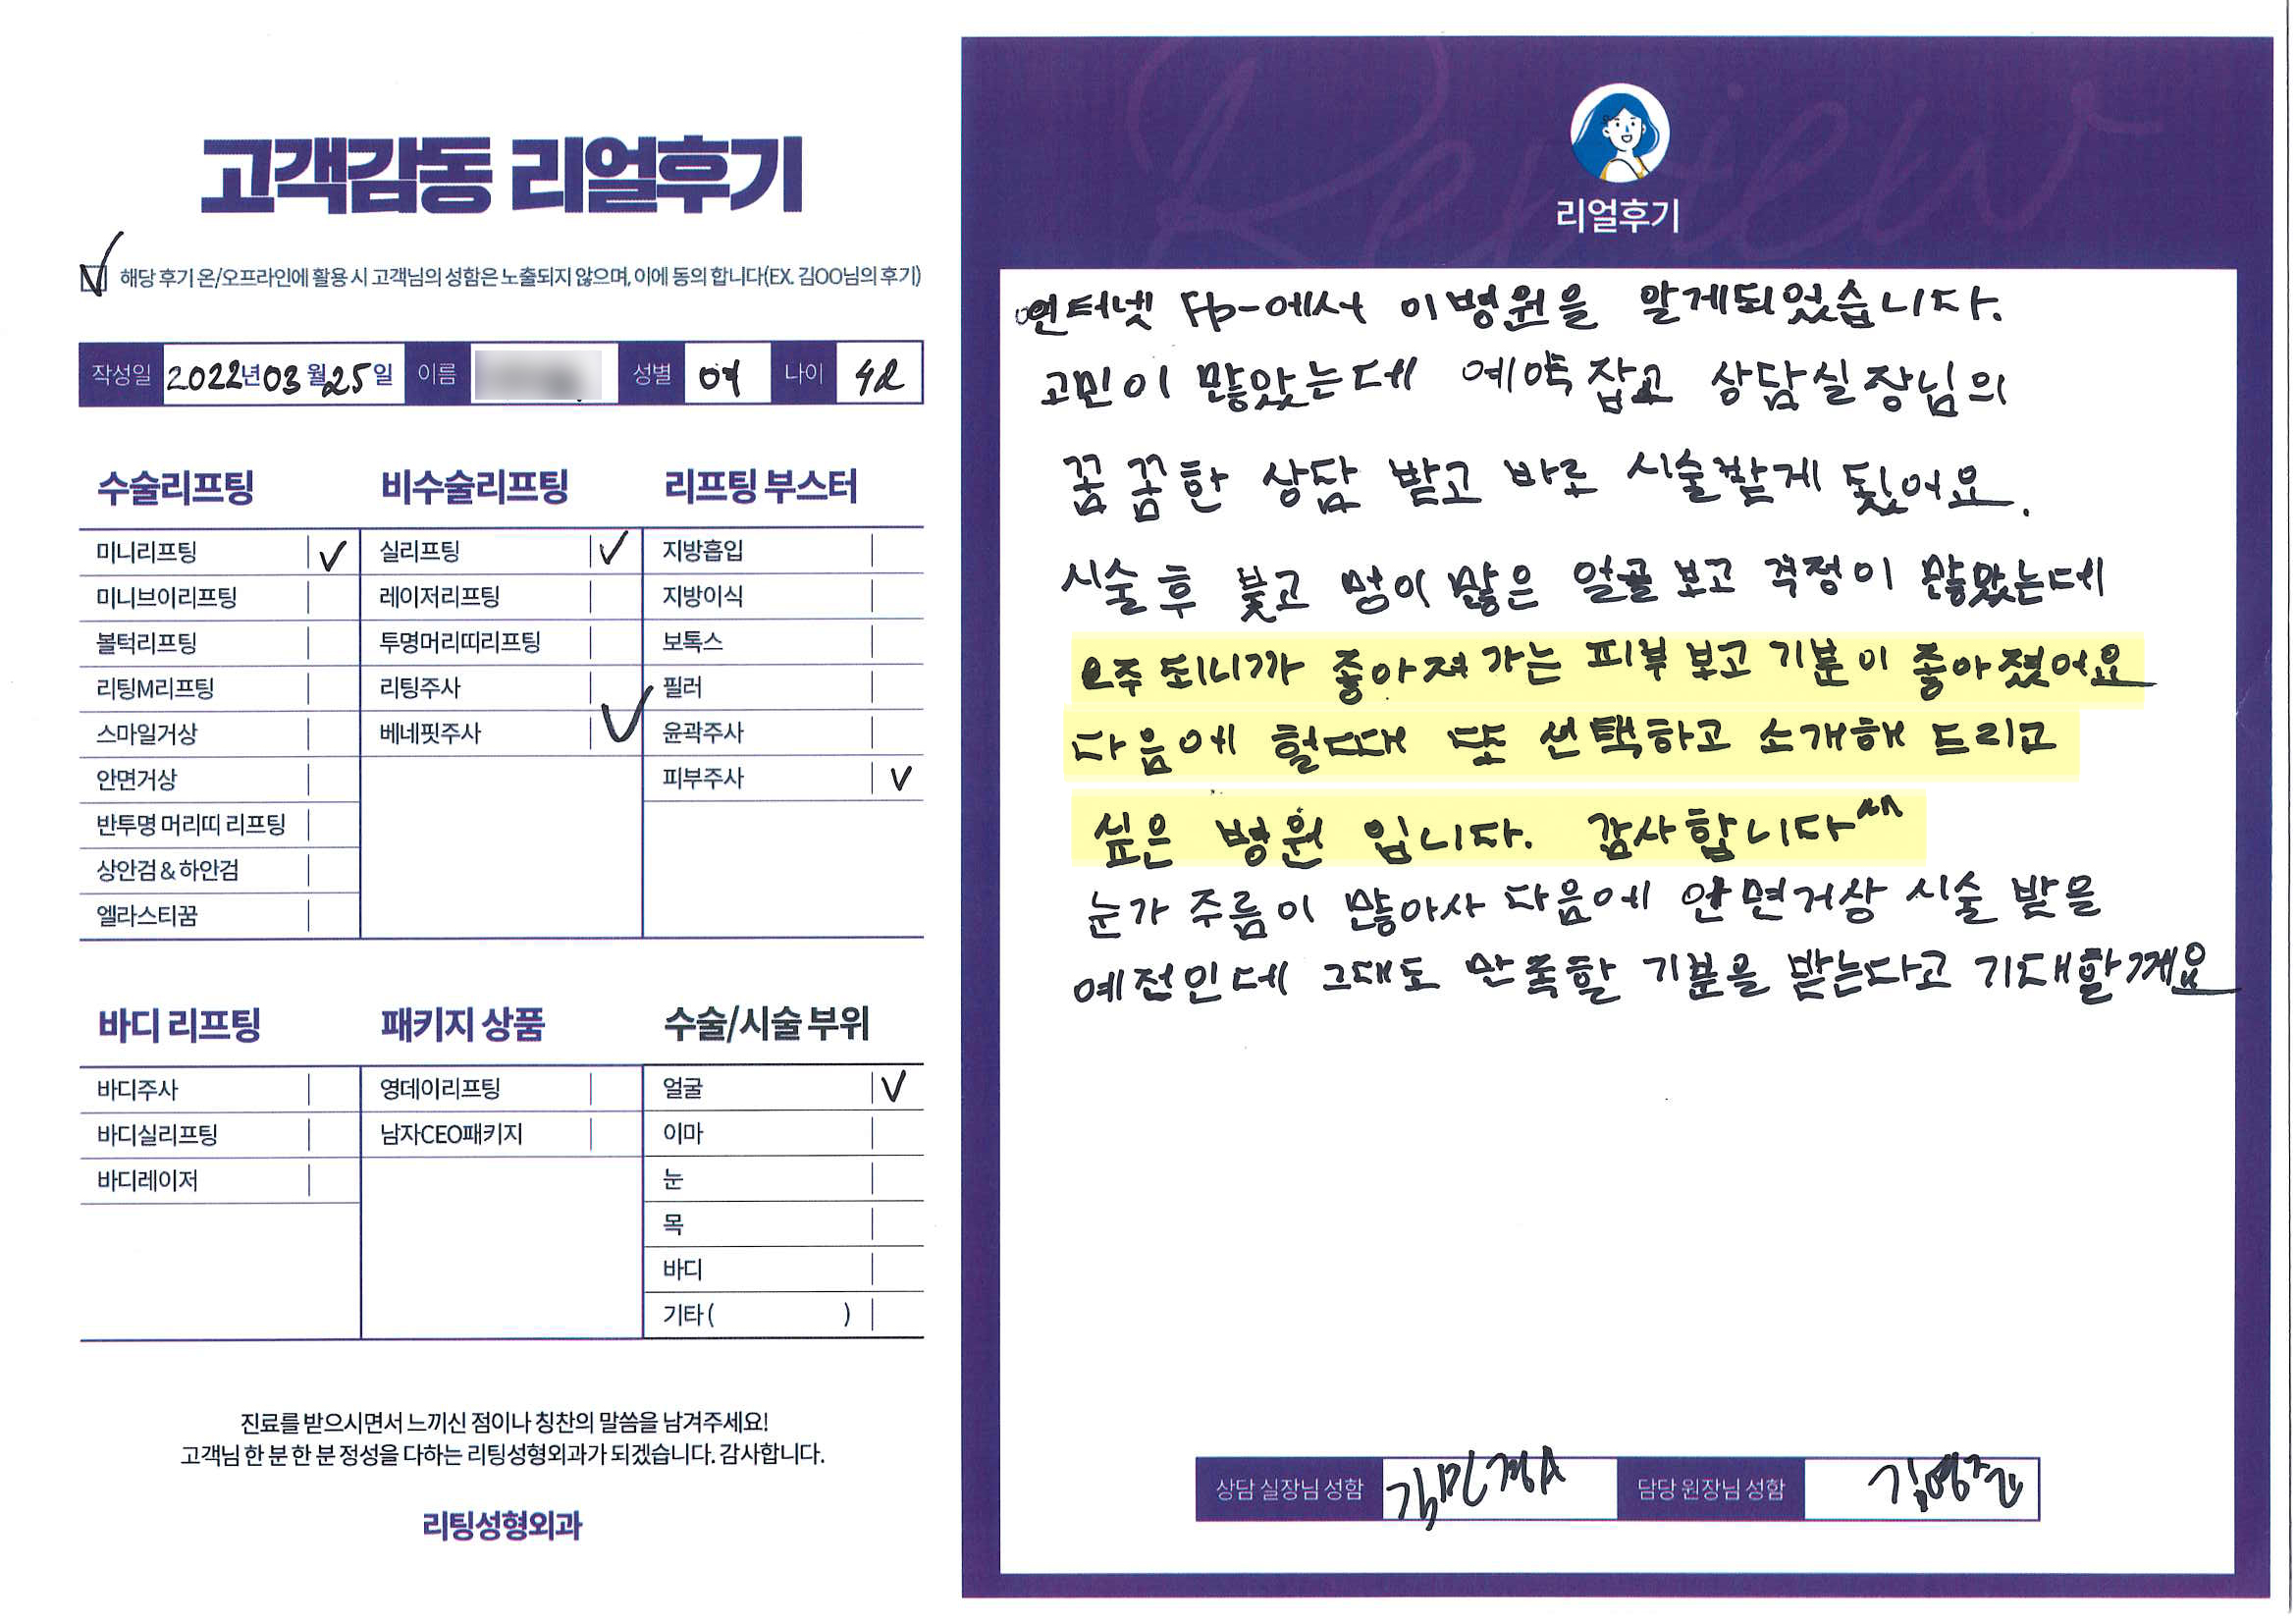 고객감동 리얼후기
해당 후기 온/오프라인에 활용 시 고객님의 성함은 노출되지 않으며, 이에 동의 합니다(EX. 김OO님의 후기)
작성일 2022년 03월 25일 이름 성별 여 나이 42
수술리프팅 비수술리프팅 리프팅 부스터
미니리프팅 실리프팅 지방흡입
미니브이리프팅 레이저리프팅 지방이식
볼턱리프팅 투명머리띠리프팅 보톡스
리팅M리프팅 리팅주사 필러
스마일거상 베네핏주사 윤곽주사
안면거상 피부주사
반투명 머리띠 리프팅
상안검 & 하안검
엘라스티꿈
바디 리프팅 패키지 상품 수술/시술 부위
바디주사 영데이리프팅 얼굴
바디실리프팅 남자CEO패키지 이마
바디레이저 눈
목
바디
기타 ( )
진료를 받으시면서 느끼신 점이나 칭찬의 말씀을 남겨주세요!
고객님 한 분 한 분 정성을 다하는 리팅성형외과가 되겠습니다. 감사합니다.
리팅성형외과
Review
리얼후기
에서 이병원을 알게되었습니다.
고민이 많았는데 예약잡고 상담실장님의
꼼꼼한 상담 받고 바로 시술받게 됬어요.
시술 후 붖고 멍이 많은 얼골 보고 걱정이 많았는데
되니까 좋아져 가는 피부 보고 기분이 좋아졌어요
다음에 할때 또 선택하고 소개해 드리고
싶은 병원 입니다. 감사합니다^^
눈가 주름이 많아사 다음에 안면거상 시술 받을
예전인데 그때도 만족할 기분을 받는다고 기대할께요
상담 실장님 성함 담당 원장님 성함